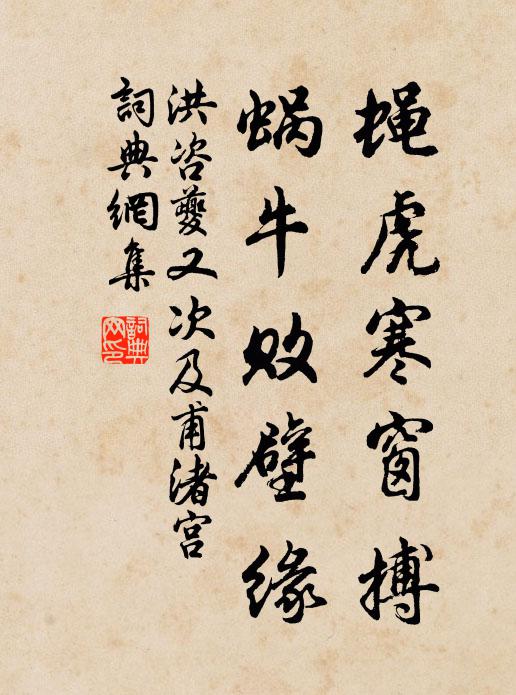 蝇虎寒窗搏
蜗牛败壁缘
洪咨夔又次及甫渚宫
詞典網集
詞典網印